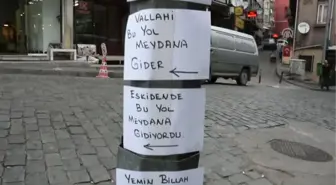 VALLAHİ
BU YOL
MEYDANA
GİDER
ESKİDENDE
BU YOL
MEYDANA
GİDİYORDU.
YEMİN BİLLAH